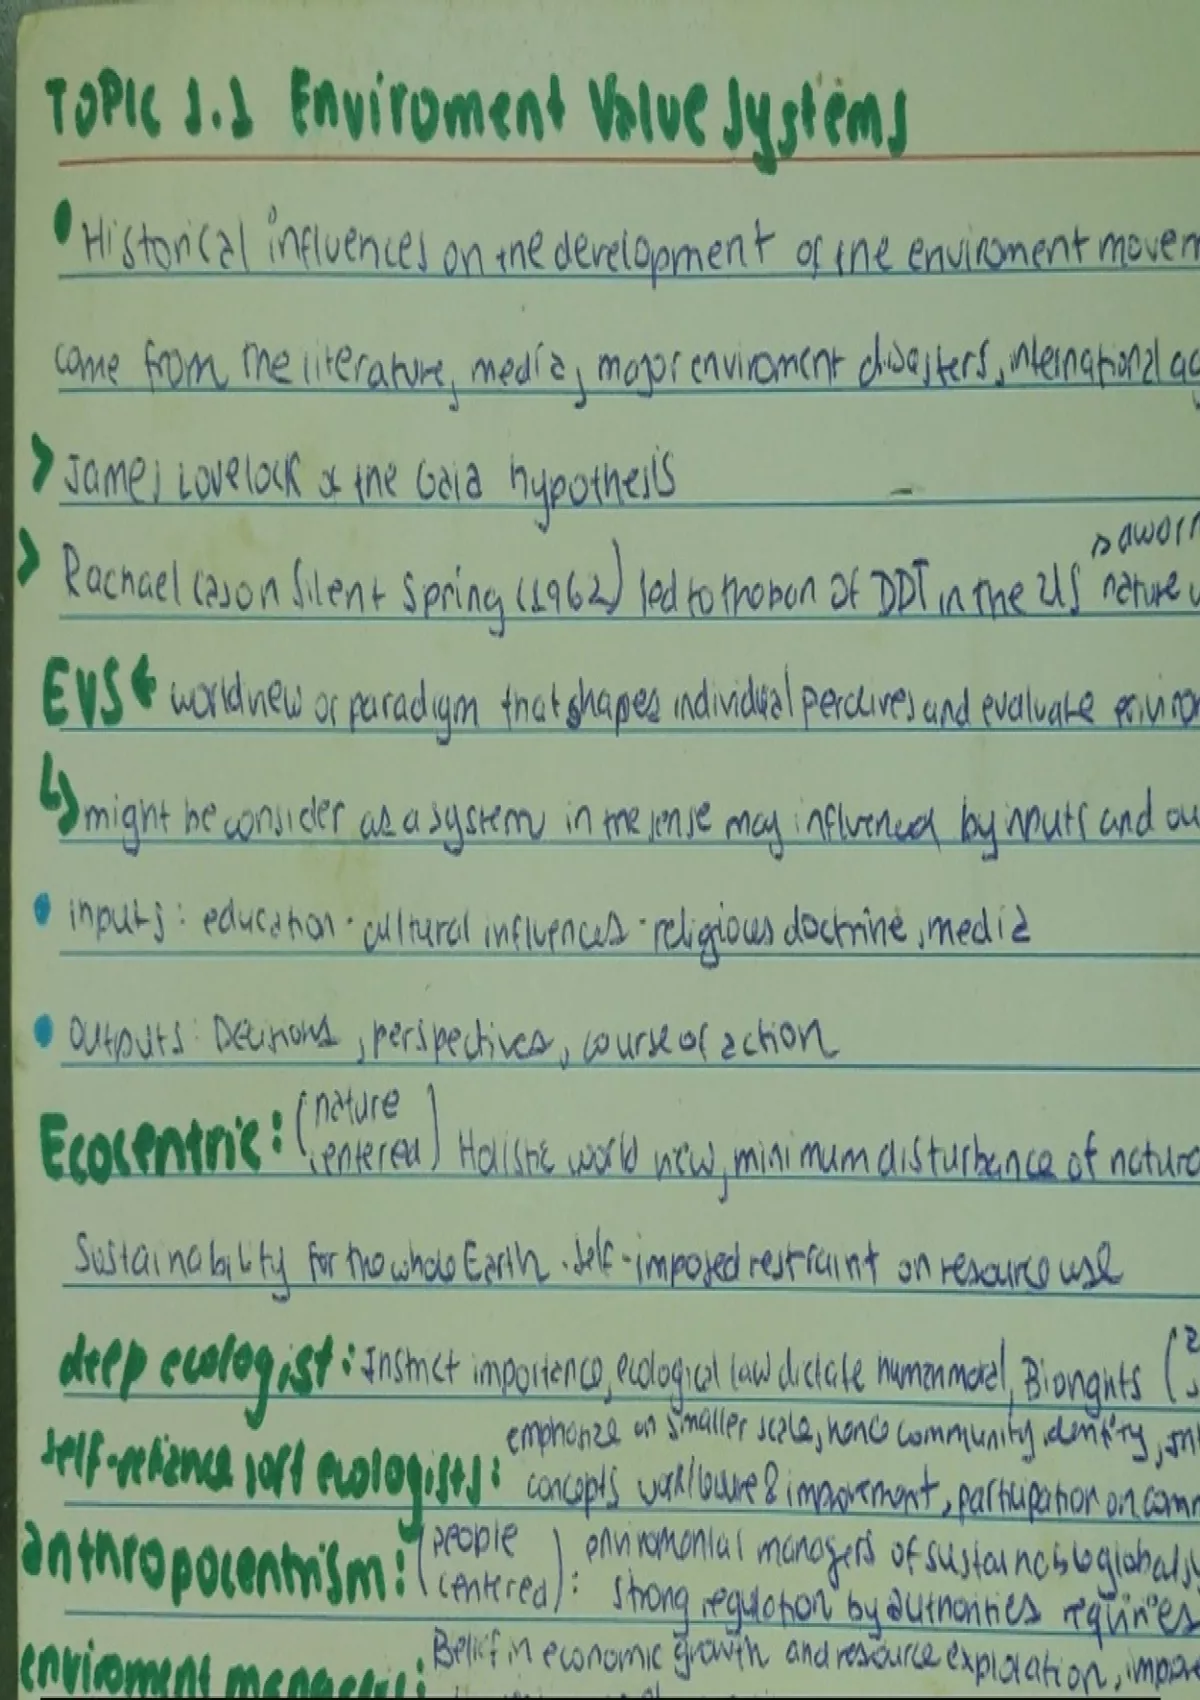 TOPIC 1.1 Enviroment Value Systems
Historical influences on the development of the enviroment movem
come from the literature, media, major enviroment disasters, international ag
> James Lovelock & the Gaia hypothesis
> Rachael Cason Silent Spring (1962) led to the ban of DDT in the US nature
EVS worldview or paradigm that shapes individual percives and evaluate enviro
↳ might be consider as a system in the sense may influenced by inputs and ou
• inputs: education · cultural influences · religious doctrine, media
• Outputs: Decisions, perspectives, course of action
Ecocentric: (nature centered) Holistic world view, minimum disturbance of natura
Sustainability for the whole Earth. Self-imposed restraint on resource use
deep ecologist: importance, ecological law dictate human moral, Biorights
self-reliance soft ecologists: emphasize on smaller scale, hence community identity, int
concepts & improvement, participation on comm
anthropocentrism: (people centered): enviromental managers of sustainable global sy
strong regulation by authorities requires
enviroment managers: Belief in economic growth and resource exploration, impor